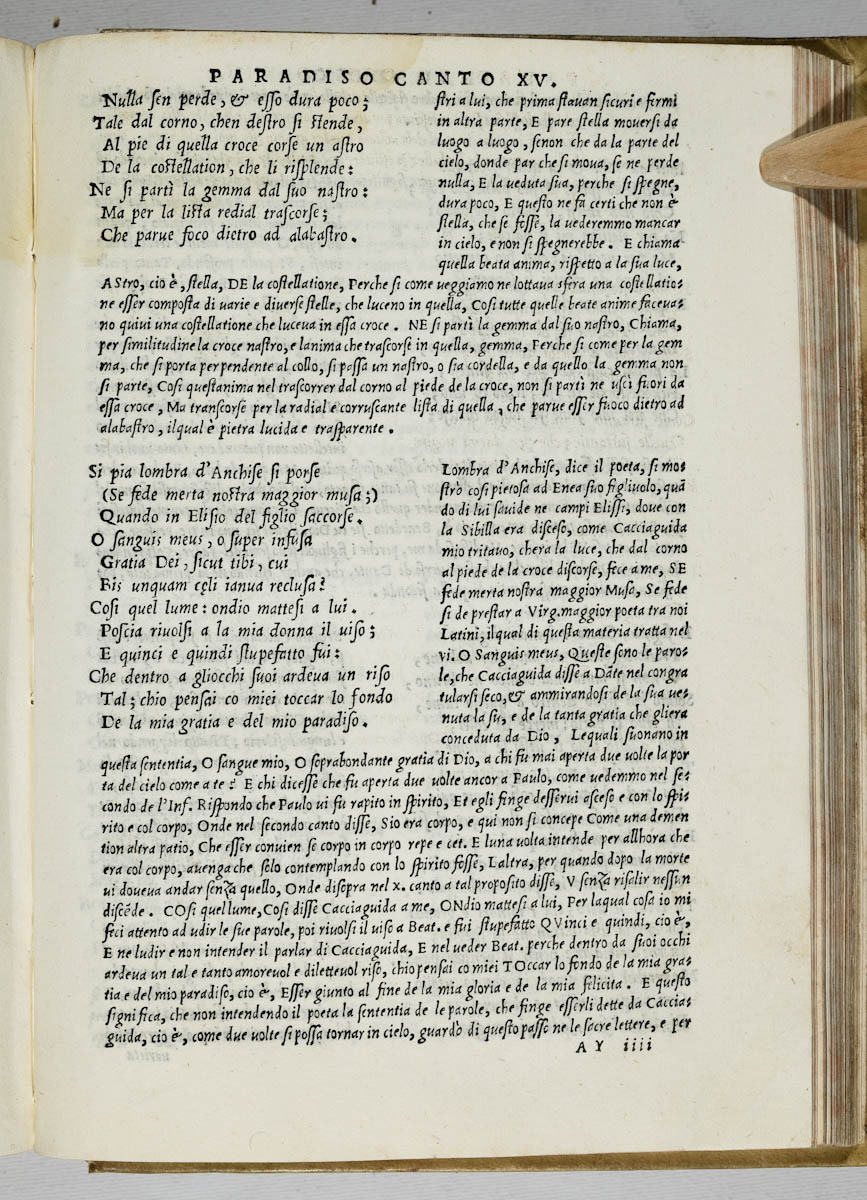 PARADISO CANTO XV.
Nulla sen perde, & esso dura poco;
Tale dal corno, chen destro si stende,
Al pie di quella croce corse un astro
De la costellation, che li risplende:
Ne si partì la gemma dal suo nastro:
Ma per la lista redial trascorse;
Che parue foco dietro ad alabastro.
stri a lui, che prima stauan sicuri e fermi
in altra parte, E pare stella mouersi da
luogo a luogo, senon che da la parte del
cielo, donde par che si moua, se ne perde
nulla, E la ueduta sua, perche si spegne,
dura poco, E questo ne fa certi che non è
stella, che se fosse, la uederemmo mancar
in cielo, e non si spegnerebbe. E chiama
quella beata anima, rispetto a la sua luce,
ASTro, cio è, stella, DE la costellatione, Perche si come ueggiamo ne lottaua sfera una costellatio=
ne esser composta di uarie e diuerse stelle, che luceno in quella, Cosi tutte quelle beate anime faceua=
no quiui una costellatione che luceua in essa croce. NE si partì la gemma dal suo nastro, Chiama,
per similitudine la croce nastro, e lanima che trascorse in quella, gemma, Perche si come per la gem
ma, che si porta perpendente al collo, si passa un nastro, o sia cordella, e da quello la gemma non
si parte, Cosi questanima nel trascorrer dal corno al piede de la croce, non si partì ne uscì fuori da
essa croce, Ma transcorse per la radial e corruscante lista di quella, che parue esser fuoco dietro ad
alabastro, ilqual è pietra lucida e trasparente.
Si pia lombra d'Anchise si porse
(Se fede merta nostra maggior musa;)
Quando in Elisio del figlio saccorse.
O sanguis meus, o super infusa
Gratia Dei, sicut tibi, cui
Bis unquam cęli ianua reclusa?
Cosi quel lume: ondio mattesi a lui.
Poscia riuolsi a la mia donna il uiso;
E quinci e quindi stupefatto fui:
Che dentro a gliocchi suoi ardeua un riso
Tal; chio pensai co miei toccar lo fondo
De la mia gratia e del mio paradiso.
Lombra d'Anchise, dice il poeta, si mos=
strò cosi pietosa ad Enea suo figliuolo, quã
do di lui sauide ne campi Elissi, doue con
la Sibilla era disceso, come Cacciaguida
mio tritauo, chera la luce, che dal corno
al piede de la croce discorse, fece a me, SE
fede merta nostra maggior Musa, Se fede
si de prestar a Virg. maggior poeta tra noi
Latini, ilqual di questa materia tratta nel
vi. O Sanguis meus, Queste sono le paro=
le, che Cacciaguida disse a Dãte nel congra
tularsi seco, & ammirandosi de la sua ue=
nuta la su, e de la tanta gratia che gliera
conceduta da Dio, Lequali suonano in
questa sententia, O sangue mio, O soprabondante gratia di Dio, a chi fu mai aperta due uolte la por
ta del cielo come a te? E chi dicesse che fu aperta due uolte ancor a Paulo, come uedemmo nel se=
condo de l'Inf. Rispondo che Paulo ui fu rapito in spirito, Et egli finge desserui asceso e con lo spi=
rito e col corpo, Onde nel secondo canto disse, Sio era corpo, e qui non si concepe Come una demen
tion altra patio, Che esser conuien se corpo in corpo repe e cet. E luna uolta intende per allhora che
era col corpo, auenga che solo contemplando con lo spirito fosse, Laltra, per quando dopo la morte
ui doueua andar senza quello, Onde disopra nel x. canto a tal proposito disse, V senza risalir nessun
discẽde. COsi quel lume, Cosi disse Cacciaguida a me, ONdio mattesi a lui, Per laqual cosa io mi
feci attento ad udir le sue parole, poi riuolsi il uiso a Beat. e fui stupefatto QVinci e quindi, cio è,
E ne ludir e non intender il parlar di Cacciaguida, E nel ueder Beat. perche dentro da suoi occhi
ardeua un tal e tanto amoreuol e diletteuol riso, chio pensai co miei TOccar lo fondo de la mia gra=
tia e del mio paradiso, cio è, Esser giunto al fine de la mia gloria e de la mia felicita. E questo
significa, che non intendendo il poeta la sententia de le parole, che finge esserli dette da Caccia=
guida, cio è, come due uolte si possa tornar in cielo, guardò di questo passo ne le sacre lettere, e per
AY iiii